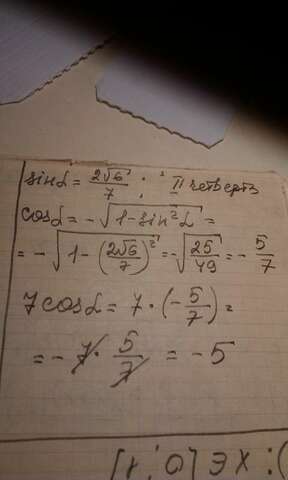 sinα = 2√6/7 . II четверть
cosα = -√(1-sin²α) =
= -√(1-(2√6/7)²) = -√(25/49) = -5/7
7cosα = 7·(-5/7) =
= -7·5/7 = -5